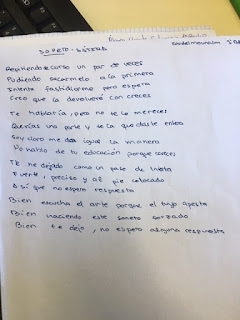 SONETO - SÁTIRA
Repitiendo curso un par de veces
Pudiendo sacarmelo a la primera
Intenta fastidiarme pero espera
Creo que la devolveré con creces
Te hablaría, pero no te lo mereces
Querías una parte y te la daste entera
Soy claro me da igual la manera
No hablo de tu educación porque careces
Te he dejado como un pase de
Fuerte, preciso y al pie colocado
Así que no espero respuesta
Bien escucha el arte porque el tuyo apesta
Bien haciendo este soneto forzado
Bien te dejo, no espero alguna respuesta